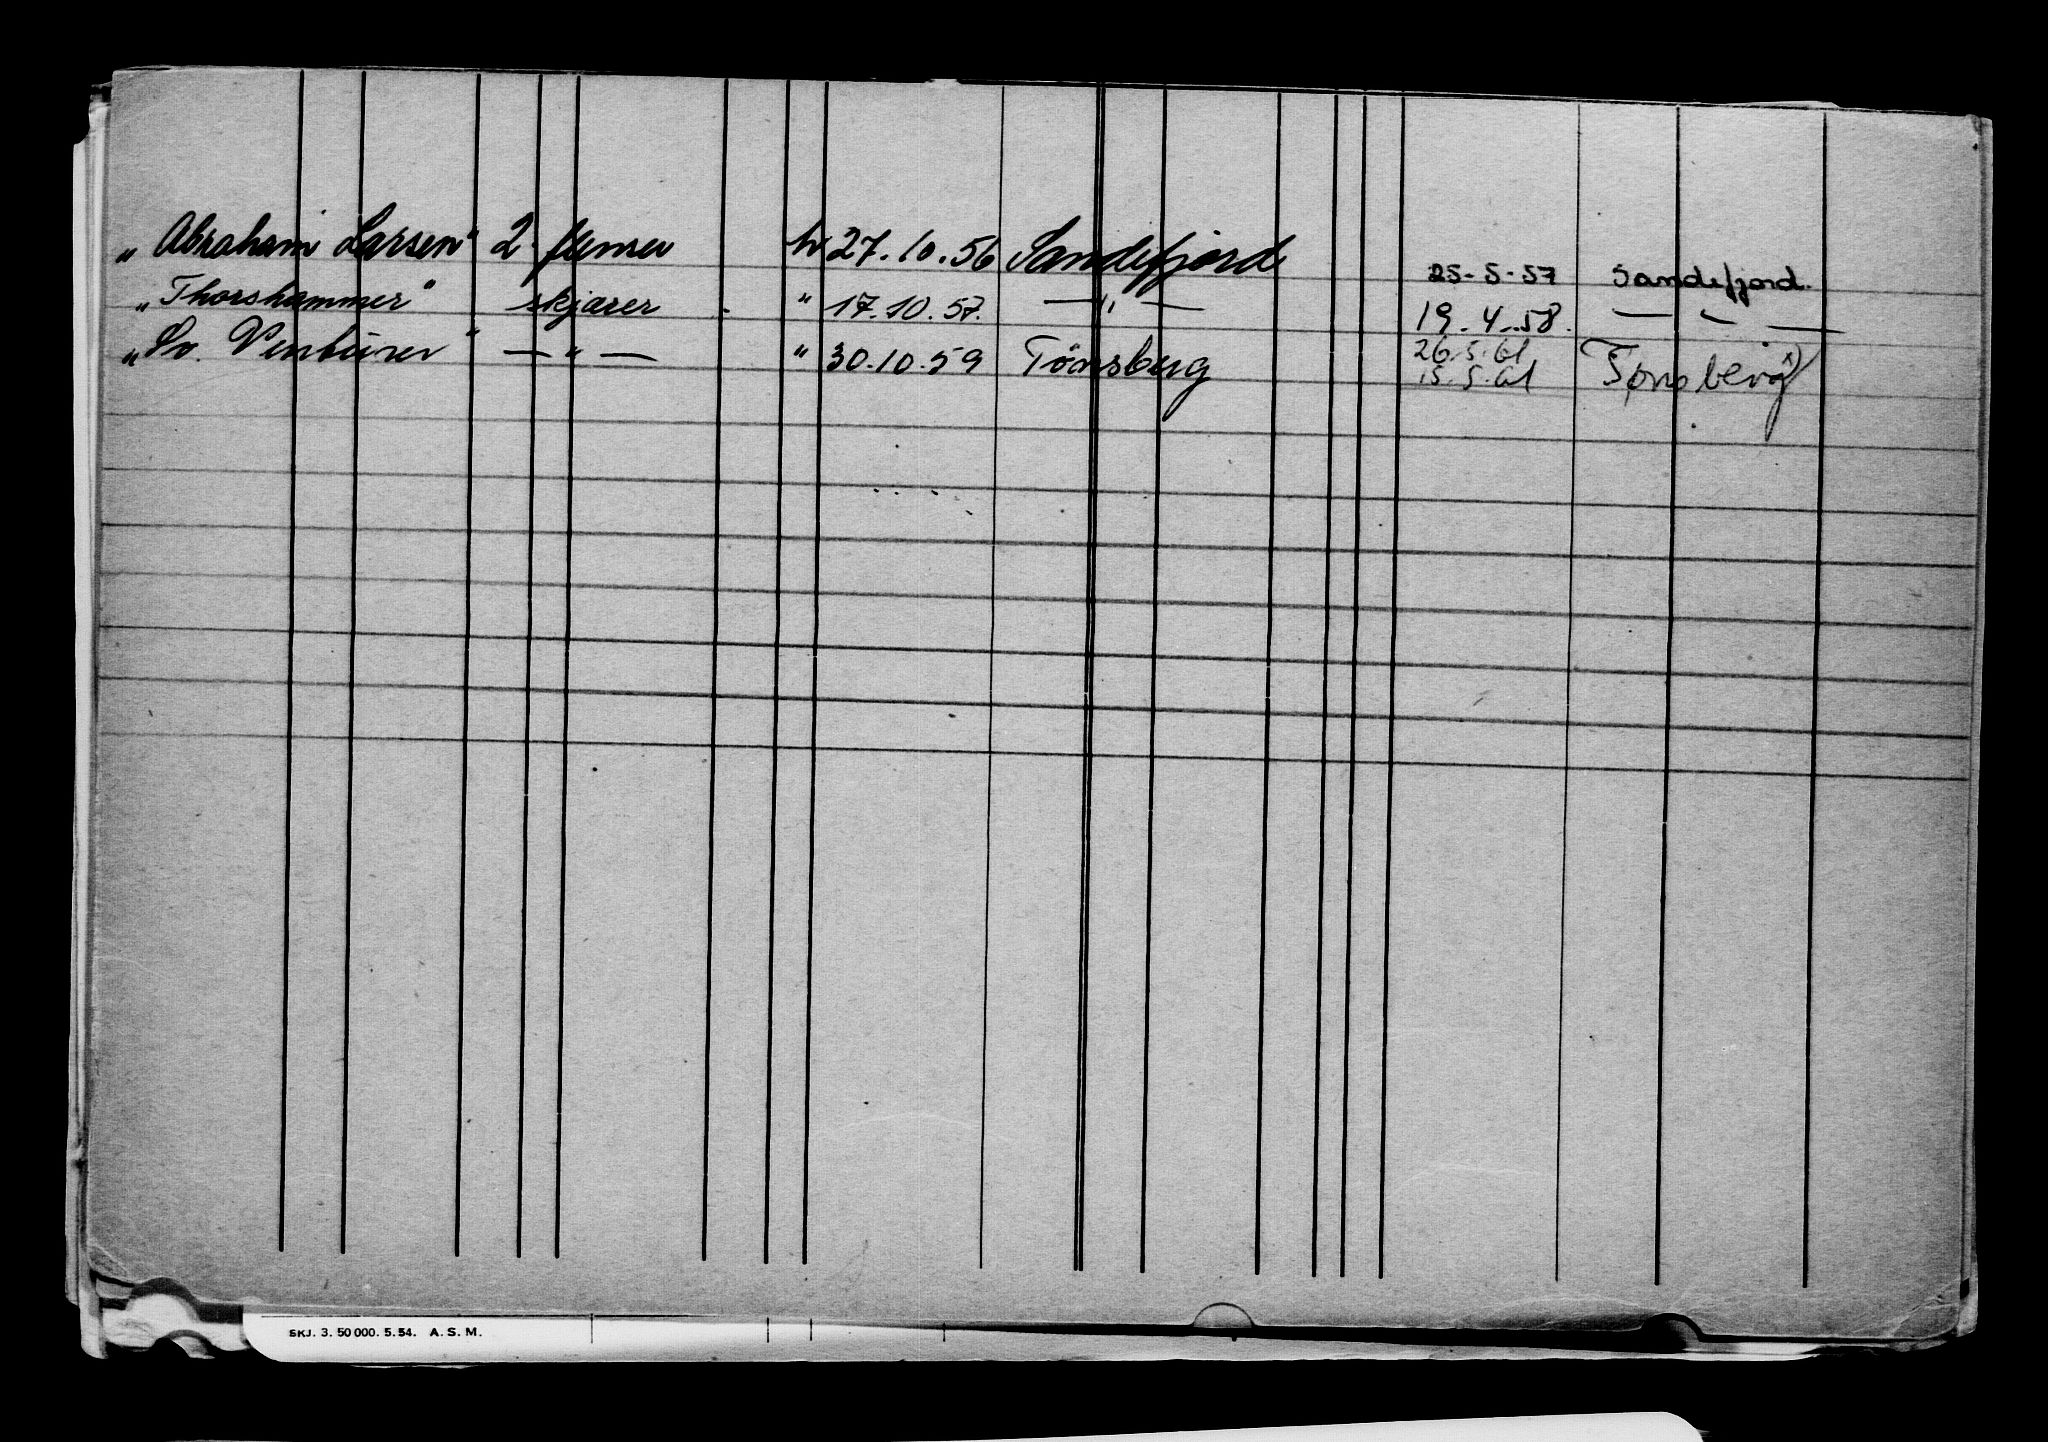 „Abraham Larsen" 2. flenser h 27.10.56 Sandefjord 25-5-57 Sandefjord.
„Thorshammer" skjærer " 17.10.57. — " — 19.4.58. — " —
„Sv. Venturer" — " — " 30.10.59 Tönsberg 26.5.61 Tønsberg x)
15.5.61
SKJ. 3. 50 000. 5. 54. A. S. M.